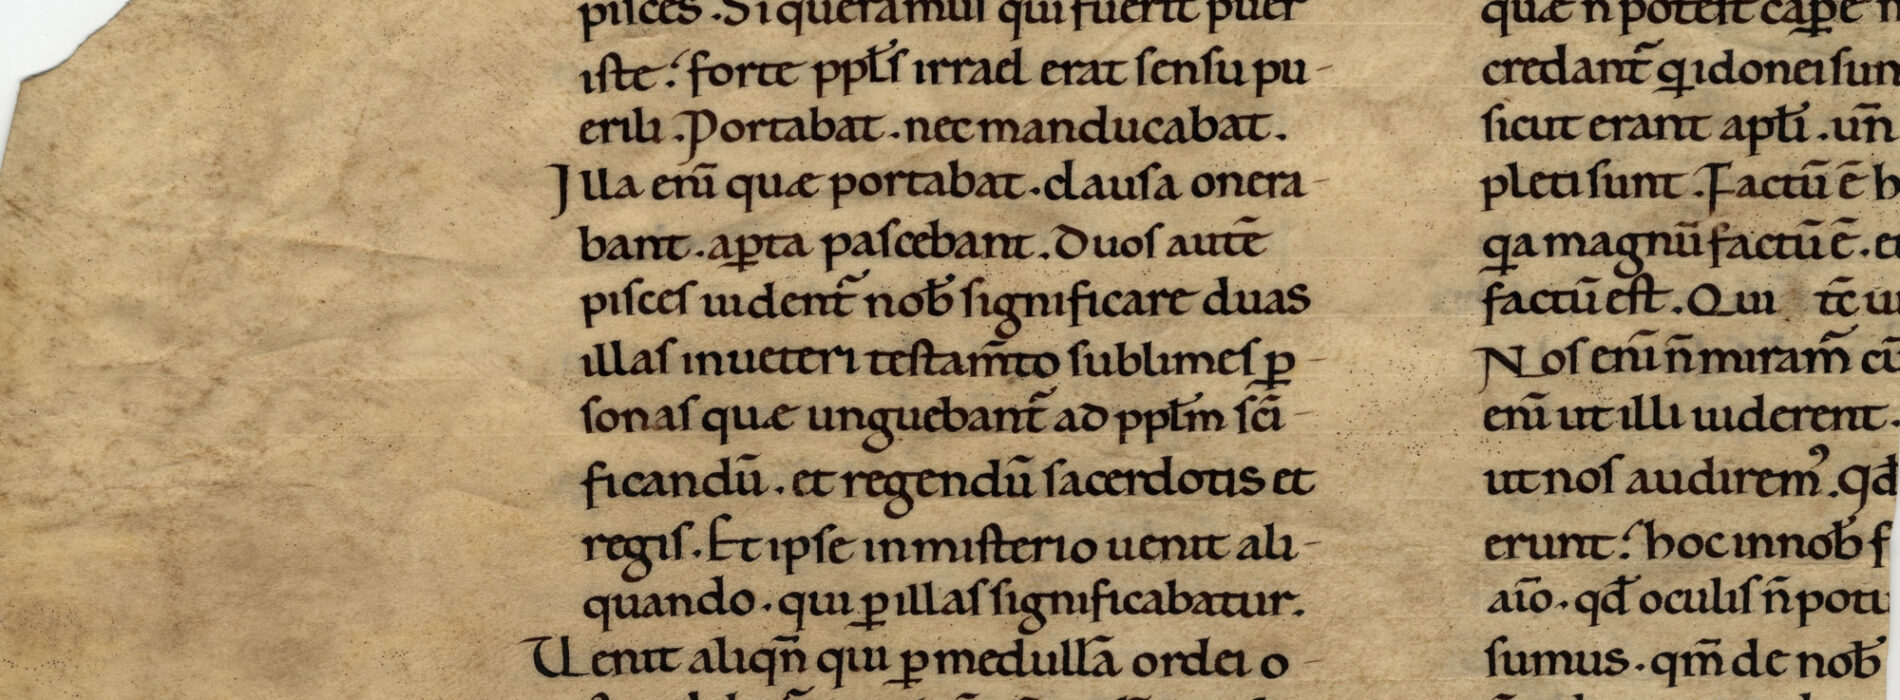 piſces .Si queramuſ qui fuerit puer
iſte: forte ppl̄ſ irrael erat ſenſu pu-
erili .Portabat .nec manducabat.
Illa eni̅ quæ portabat .clauſa onera-
bant .ap̲ta paſcebant .Duoſ aute̅
piſceſ uident̅ nob̅ significare duas
illaſ inueteri teſtam̅to ſublimeſ p̲-
ſonaſ quæ unguebant̅ ad ppl̅m ſc̅i-
ficandu̅ .et regendu̅ ſacerdotis et
regiſ .Et ipſe in miſterio uenit ali-
quando .qui p̲ illaſ ſignificabatur.
Uenit aliqn̅ qui p̲ medulla̅ ordei o-
quæ n̅ poteſt cap̲e
credant̅ q̲ idonei ſun
ſicut erant apl̅i .un̅
pleti ſunt .Factu̅ e̅ h
q̲a magnu̅ factu̅ e̅ .et
factu̅ eſt .Qui tc̅ ui
Noſ eni̅ n̅ miram̅ cu̅
eni̅ ut illi uiderent.
ut noſ audirem᾽ .qd̅
erunt: hoc in nob̅ f
aio̅ .qd̅ oculiſ n̅ potu
ſumus .qm̅ de nob̅